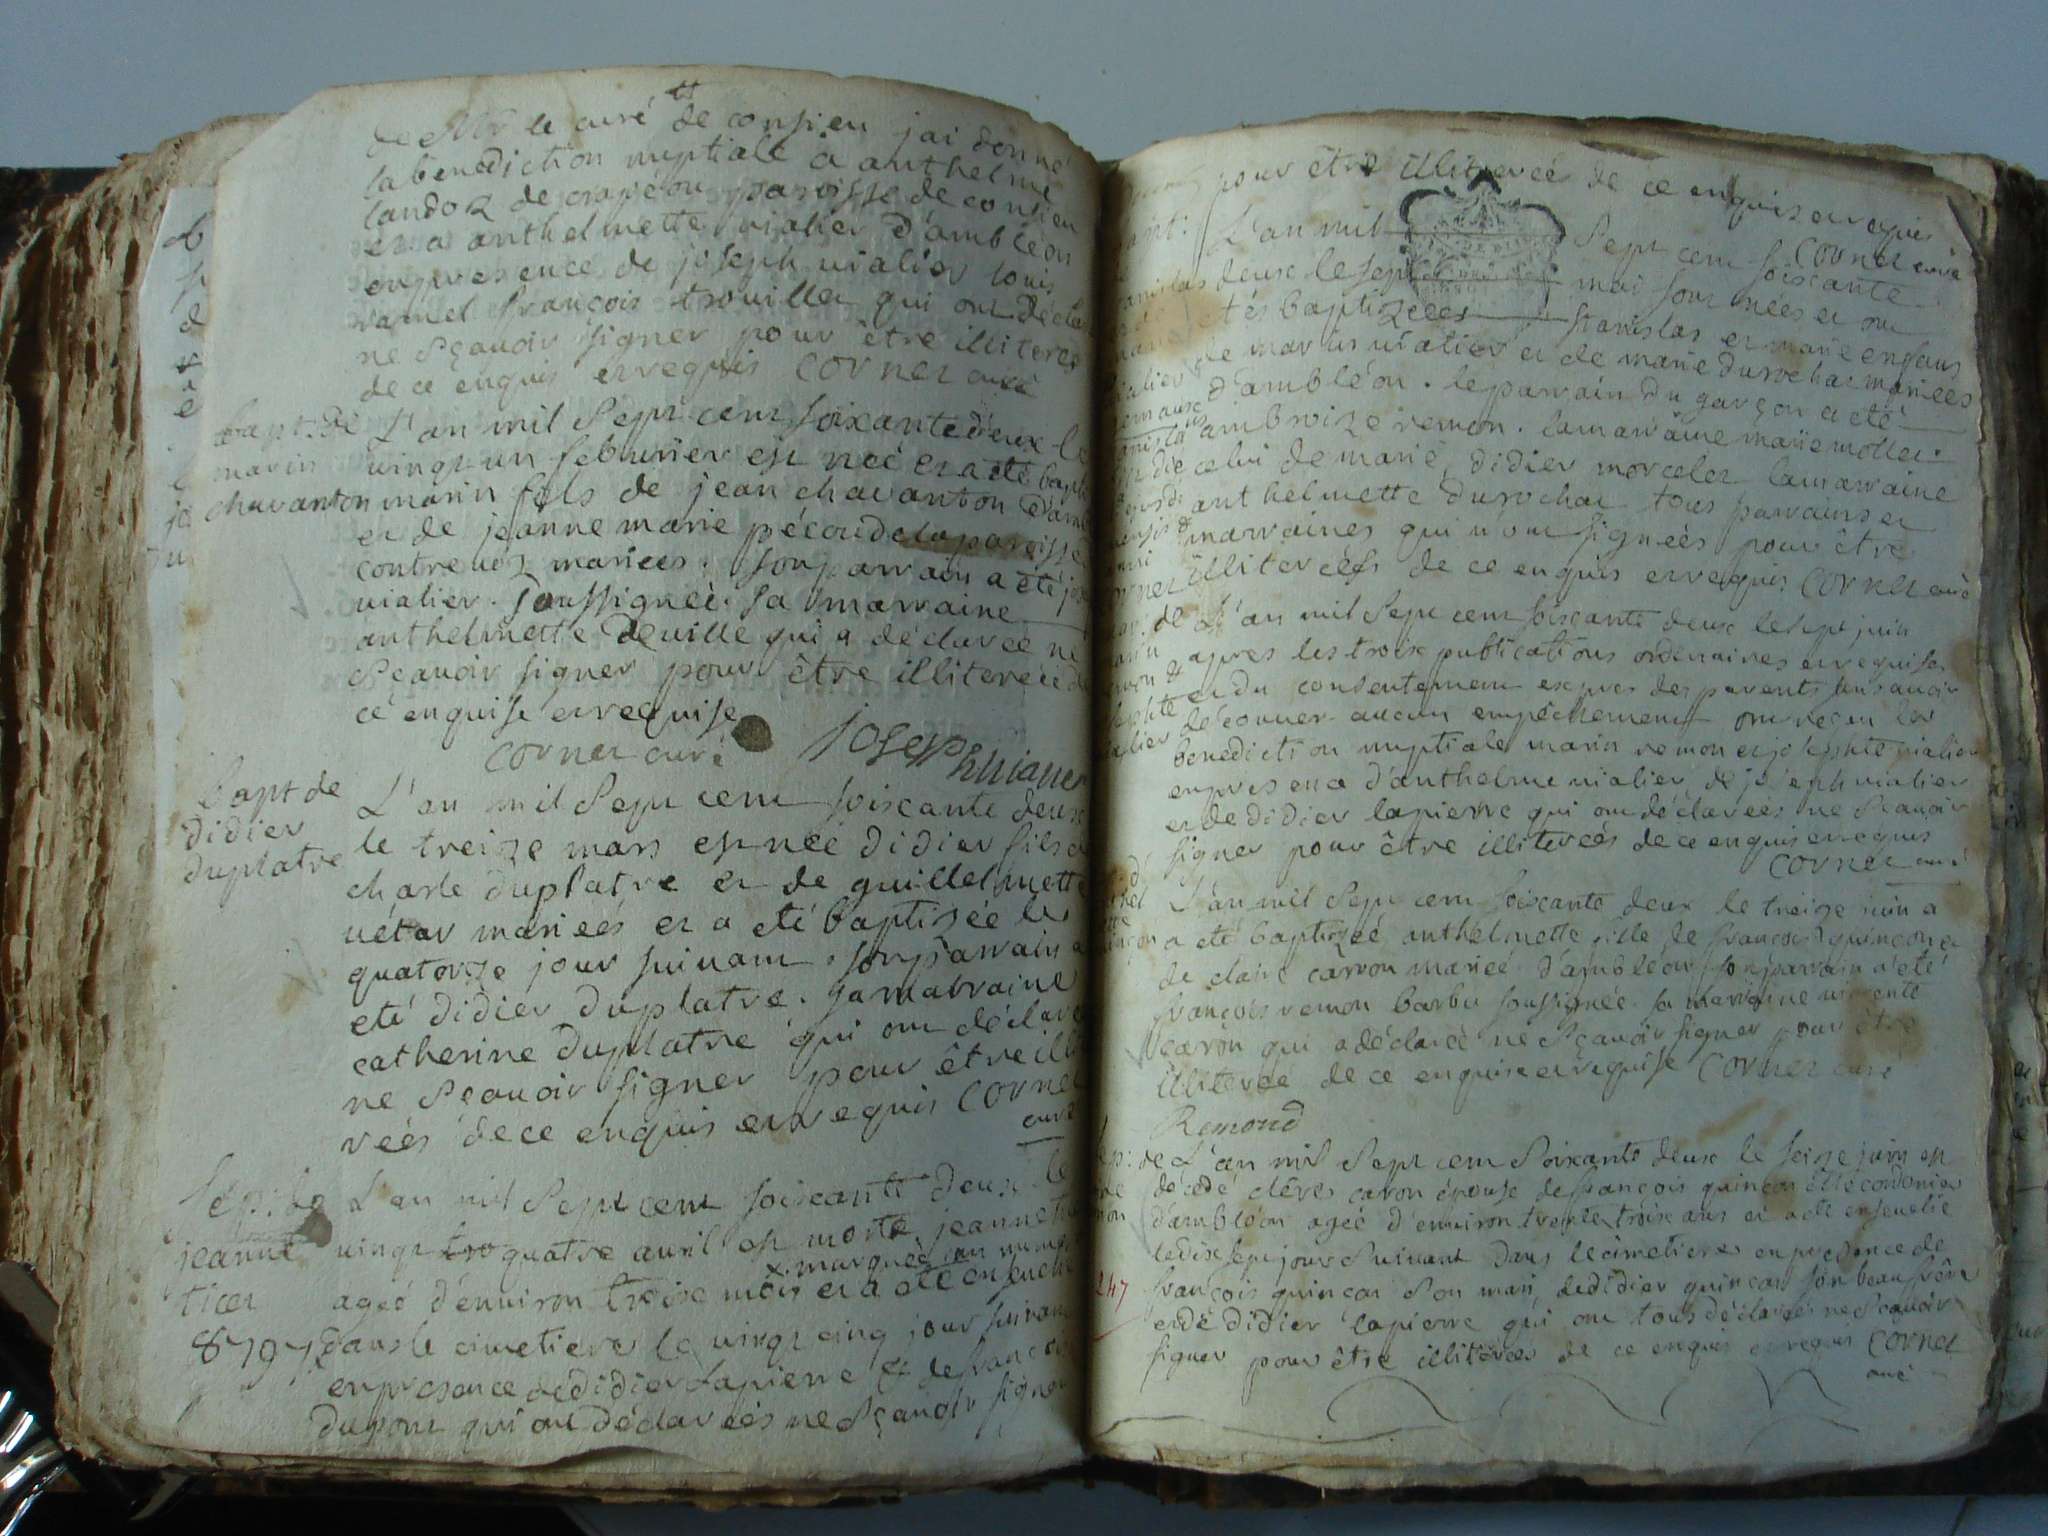 de Mr le curé de consieu jai donné
la benediction nuptiale a anthelme
landoz de crapéou paroisse de consieu
et a anthelmette vialier d'ambléon
en presence de joseph vialier louis
ramel françois trouiller qui ont décla
ne sçavoir signer pour être illiterés
de ce enquis et requis cornet curé
bapt. de
marin
chavanton
L'an mil sept cent soixante deux le
vingt un febvrier est neé et a eté bapti
marin fils de jean chavanton d'amb
et de jeanne marie pécoud de la paroisse
contrevoz marieés. son parrain a eté jos
vialier soussigneé. sa marraine
anthelmette deville qui a declareé ne
sçavoir signer pour être illitereée de
ce enquise et requise
cornet curé joseph vialier
bapt de
didier
duplatre
L'an mil sept cent soixante deux
le treize mars est neé didier fils de
charle duplatre et de guillelmette
vétar marieés et a eté baptiseé le
quatorze jour suivant. son parrain a
eté didier duplatre. sa marraine
catherine duplatre qui ont déclaré
ne sçavoir signer pour être illi
reés de ce enquis et requis cornet
curé
sep: de
jeanne
ticet
8797
L'an mil sept cent soixante deux le
vingt quatre avril est morte jeanne
x. marqueé au
ageé d'environ troise mois et a eté enseveli
dans le cimetiere le vingt cinq jour suivant
en presence de didier lapierre et de françois
dupont qui ont déclareés ne sçavoir signer
pour être illitereé de ce enquis et requis
cornet curé
L'an mil sept cent soixante
deux le sept mai sont neés et ont
etés baptizeés stanislas et marie enfans
de marin vialier et de marie durochat marieés
d'ambléon. le parrain du garçon a eté
ambroize remon. la marraine marie mollet
celui de marie, didier morcelet la marraine
anthelmette durochat tous parrains et
marraines qui n'ont signeés pour être
illitereés de ce enquis et requis cornet curé
L'an mil sept cent soixante deux le sept juin
apres les troix publications ordinaires et requises
et du consentement expres des parents sans avoir
déconner aucun empêchement ont reçeu la
benediction nuptiale marin remon et josephte vialier
en presence d'anthelme vialier de joseph vialier
et de didier lapierre qui ont déclareés ne sçavoir
signer pour être illitereés de ce enquis et requis
cornet curé
L'an mil sept cent soixante deux le treize juin a
a eté baptizeé anthelmette fille de françois quinçon et
de claire carron marieé d'ambléon son parrain a eté
françois remon barbu soussigneé. sa marraine vincente
caron qui a déclareé ne sçavoir signer pour être
illitereé de ce enquise et requise cornet curé
Remond
L'an mil sept cent soixante deux le seize juin est
decedé cléres caron épouse de françois quinçon
d'ambléon ageé d'environ trente troix ans et a eté ensevelie
le dix sept jour suivant dans le cimetiere en presence de
247
françois quinçon son mari, de didier quinçon son beau frére
et de didier lapierre qui ont tous déclareés ne sçavoir
signer pour être illitereés de ce enquis et requis cornet
curé